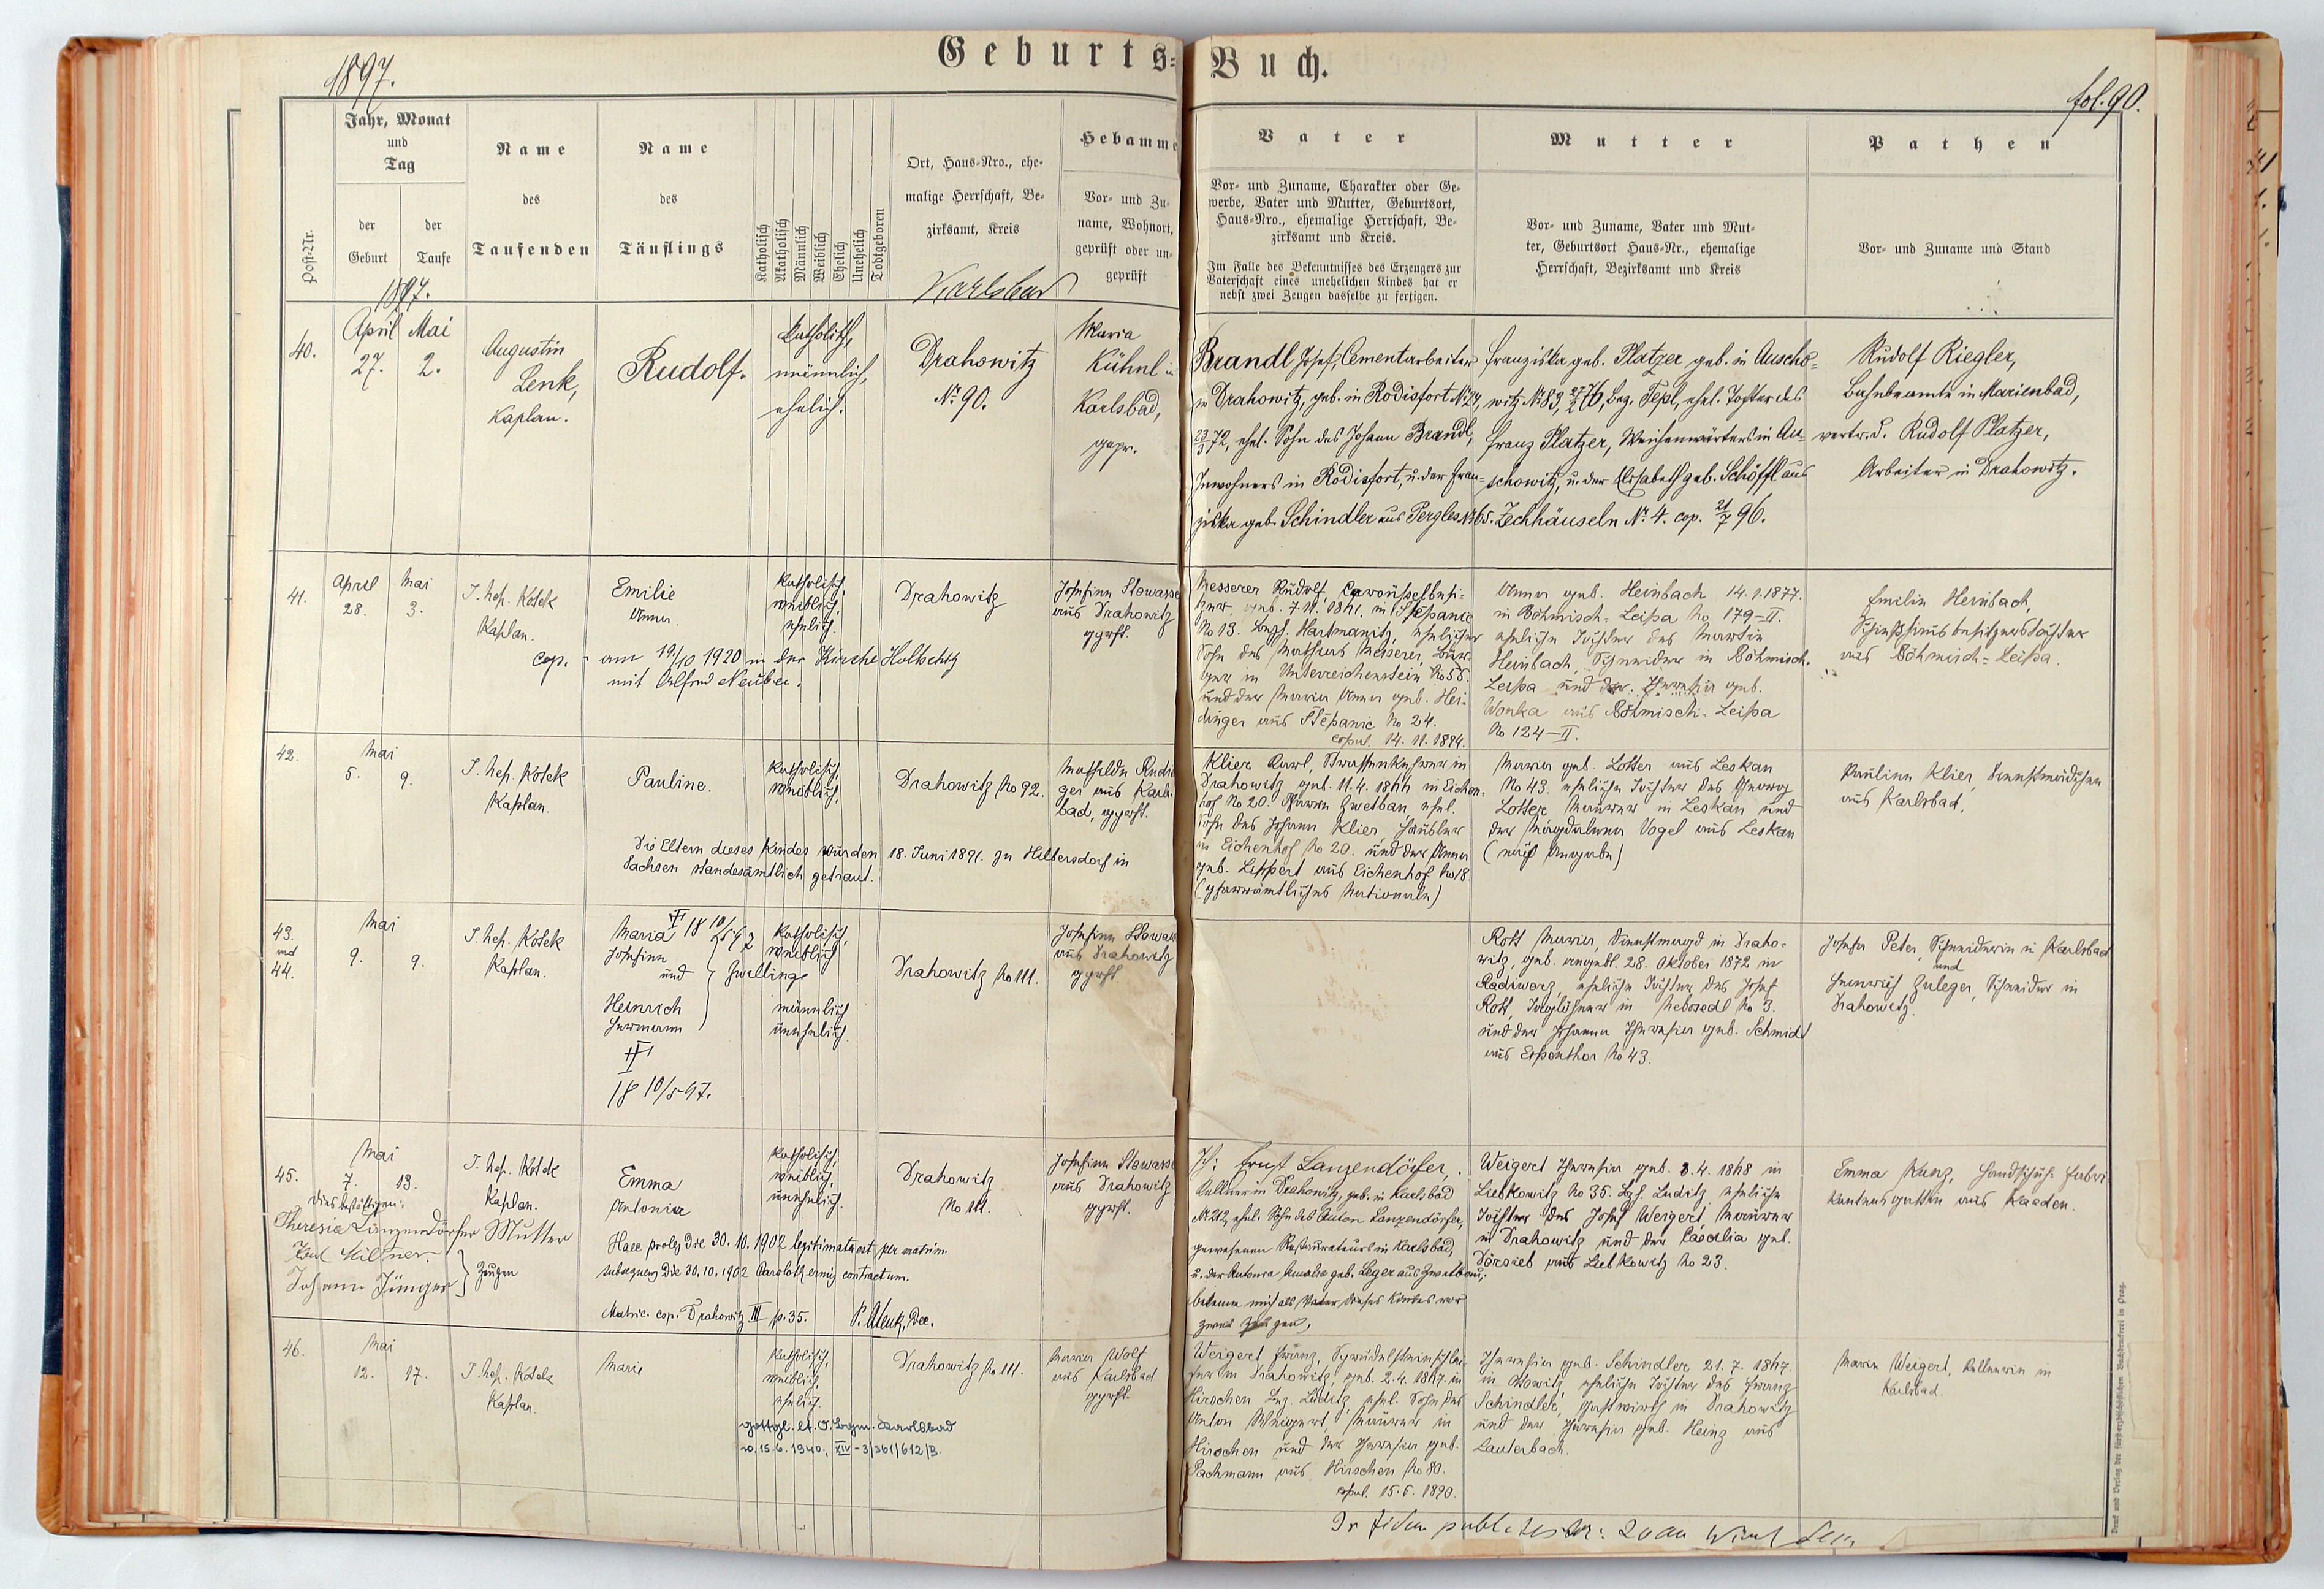 1897.
Geburts-Buch.
fol. 90.
Post-Nr.
Jahr, Monat
und
Tag
der
Geburt
der
Taufe
1897.
Name
des
Taufenden
Name
des
Täuflings
Katholisch
Akatholisch
Männlich
Weiblich
Ehelich
Unehelich
Todtgeboren
Ort, Haus-Nro., ehe-
malige Herrschaft, Be-
zirksamt, Kreis
Karlsbad
Hebamme
Vor- und Zu-
name, Wohnort,
geprüft oder un-
geprüft
Vater
Vor- und Zuname, Charakter oder Ge-
werbe, Vater und Mutter, Geburtsort,
Haus-Nro., ehemalige Herrschaft, Be-
zirksamt und Kreis.
Im Falle des Bekenntnisses des Erzeugers zur
Vaterschaft eines unehelichen Kindes hat er
nebst zwei Zeugen dasselbe zu fertigen.
Mutter
Vor- und Zuname, Vater und Mut-
ter, Geburtsort Haus-Nr., ehemalige
Herrschaft, Bezirksamt und Kreis
Pathen
Vor- und Zuname und Stand
40.
April Mai
27. 2.
Augustin
Lenk,
Kaplan.
Rudolf.
katholisch,
männlich,
ehelich.
Drahowitz
No. 90.
Maria
Kühnl in
Karlsbad,
gepr.
Brandl Josef, Cementarbeiter
in Drahowitz, geb. in Rodisfort No 24,
23/3 72, ehel. Sohn des Johann Brandl,
Inwohners in Rodisfort, u. der Fran-
ziska geb. Schindler aus Pergles No 65.
Franziska geb. Platzer geb. in Auscho-
witz No 83, 27/2 76, Bez. Tepl, ehel. Tochter des
Franz Platzer, Weichenwärters in Au-
schowitz, u. der Elisabeth geb. Schöffl aus
Zechhäuseln No. 4. cop. 21/7 96.
Rudolf Riegler,
Bahnbeamte in Marienbad,
vertr. d. Rudolf Platzer,
Arbeiter in Drahowitz.
41.
April Mai
28. 3.
J. Nep. Kosek
Kaplan.
Emilie
Anna.
katholisch,
weiblich,
ehelich.
cop. am 19/10 1920 in der Kirche
mit Alfred Neuber.
Drahowitz
Josefine Stowasser
aus Drahowitz
gprft.
Messerer Rudolf, Carousselbesi-
tzer, geb. in Stěpanic
No 13. Bzgh. Hartmanitz, ehelicher
Sohn des Mathias Messerer, Bür-
ger in Unterreichenstein No 56.
und der Maria Anna geb. Hei-
dinger aus Stěpanic No 24.
copul. 14. 11. 1894.
Anna geb. Heinbach 14. 1. 1877.
in Böhmisch-Leipa No 179-II.
eheliche Tochter des Martin
Heinbach, Schneider in Böhmisch-
Leipa und der Theresia geb.
Wonka aus Böhmisch-Leipa
No 124-II.
Emilie Heinbach,
aus Böhmisch-Leipa.
42.
Mai
5. 9.
J. Nep. Kosek
Kaplan.
Pauline.
katholisch,
weiblich,
Die Eltern dieses Kindes wurden 18. Juni 1891. zu Hilbersdorf in
Sachsen standesämtlich getraut.
Drahowitz No 92.
Mathilde
aus Karls-
bad, gprft.
Klier Karl, Strassenkehrer in
Drahowitz geb. 11. 4. in Eichen-
hof No 20. Pfarre Zwetbau, ehel.
Sohn des Johann Klier, Häusler
in Eichenhof No 20. und der Anna
geb. Lippert aus Eichenhof No 18
(pfarrämtliches Nationale)
Maria geb. Lotter aus Leskau
No 43. eheliche Tochter des Georg
Lotter Maurer in Leskau und
der Magdalena Vogel aus Leskau
(nach Angabe)
Pauline Klier, Dienstmädchen
aus Karlsbad.
43.
und
44.
Mai
9. 9.
J. Nep. Kosek
Kaplan.
Maria
Josefine
und Zwillinge
Heinrich
Hermann
18 10/5 97.
katholisch,
weiblich
männlich
unehelich.
Drahowitz No 111.
Josefine Stowasser
aus Drahowitz
gprft.
Rott Maria, Dienstmagd in Draho-
witz, geb. angebl. 28. Oktober 1872 in
Radiworz, eheliche Tochter des Josef
Rott, Taglöhner in Nebosedl No 3.
und der Johanna Theresia geb. Schmidt
aus Espenthor No 43.
Josefa Peter, Schneiderin in Karlsbad
und
Heinrich Zuleger, Schneider in
Drahowitz.
45.
Mai
7. 13.
Dies bestätigen:
Theresia Langendörfer Mutter
Johann Jünger
Zeugen
J. Nep. Kosek
Kaplan.
Emma
Antonia
katholisch,
weiblich,
unehelich.
Haec proles die 30. 10. 1902 legitimata est per matrim.
subsequens die 30. 10. 1902 Carolothermis contractum.
Matric. cop. Drahowitz III p. 35.
Drahowitz
No 111.
Josefine Stowasser
aus Drahowitz
gprft.
Ich: Ernst Langendörfer,
Kellner in Drahowitz, geb. in Karlsbad
No 212, ehel. Sohn des Anton Langendörfer,
gewesenen Restaurateurs in Karlsbad,
u. der Antonia Amalie geb. Leger aus Zwetbau,
bekenne mich als Vater dieses Kindes vor
zwei Zeugen,
Weigert Theresia geb. in
Liebkowitz No 35. Bzh. Luditz eheliche
Tochter des Josef Weigert, Maurer
in Drahowitz und der geb.
aus Liebkowitz No 23.
Emma Kunz, Handschuh-Fabri-
kantensgattin aus Kaaden.
46.
Mai
12. 17.
J. Nep. Kosek
Kaplan.
Marie
katholisch,
weiblich
ehelich.
Karlsbad
15. 6. 1940, XIV-3/361/612/B.
Drahowitz No 111.
Maria Wolf
aus Karlsbad
gprft.
Weigert Franz, Sprudelsteinschlei-
fer in Drahowitz, geb. in
Hirschen Bez. Luditz, ehel. Sohn des
Anton Weigert, Maurer in
Hirschen und der Theresia geb.
Pachmann aus Hirschen No 80.
copul. 15. 6. 1890.
Theresia geb. Schindler 21. 7.
eheliche Tochter des Franz
Schindler, Gastwirth in Drahowitz
und der Theresia geb. Heinz aus
Lauterbach.
Marie Weigert, Kellnerin in
Karlsbad.
Druck und Verlag der fürsterzbischöflichen Buchdruckerei in Prag.